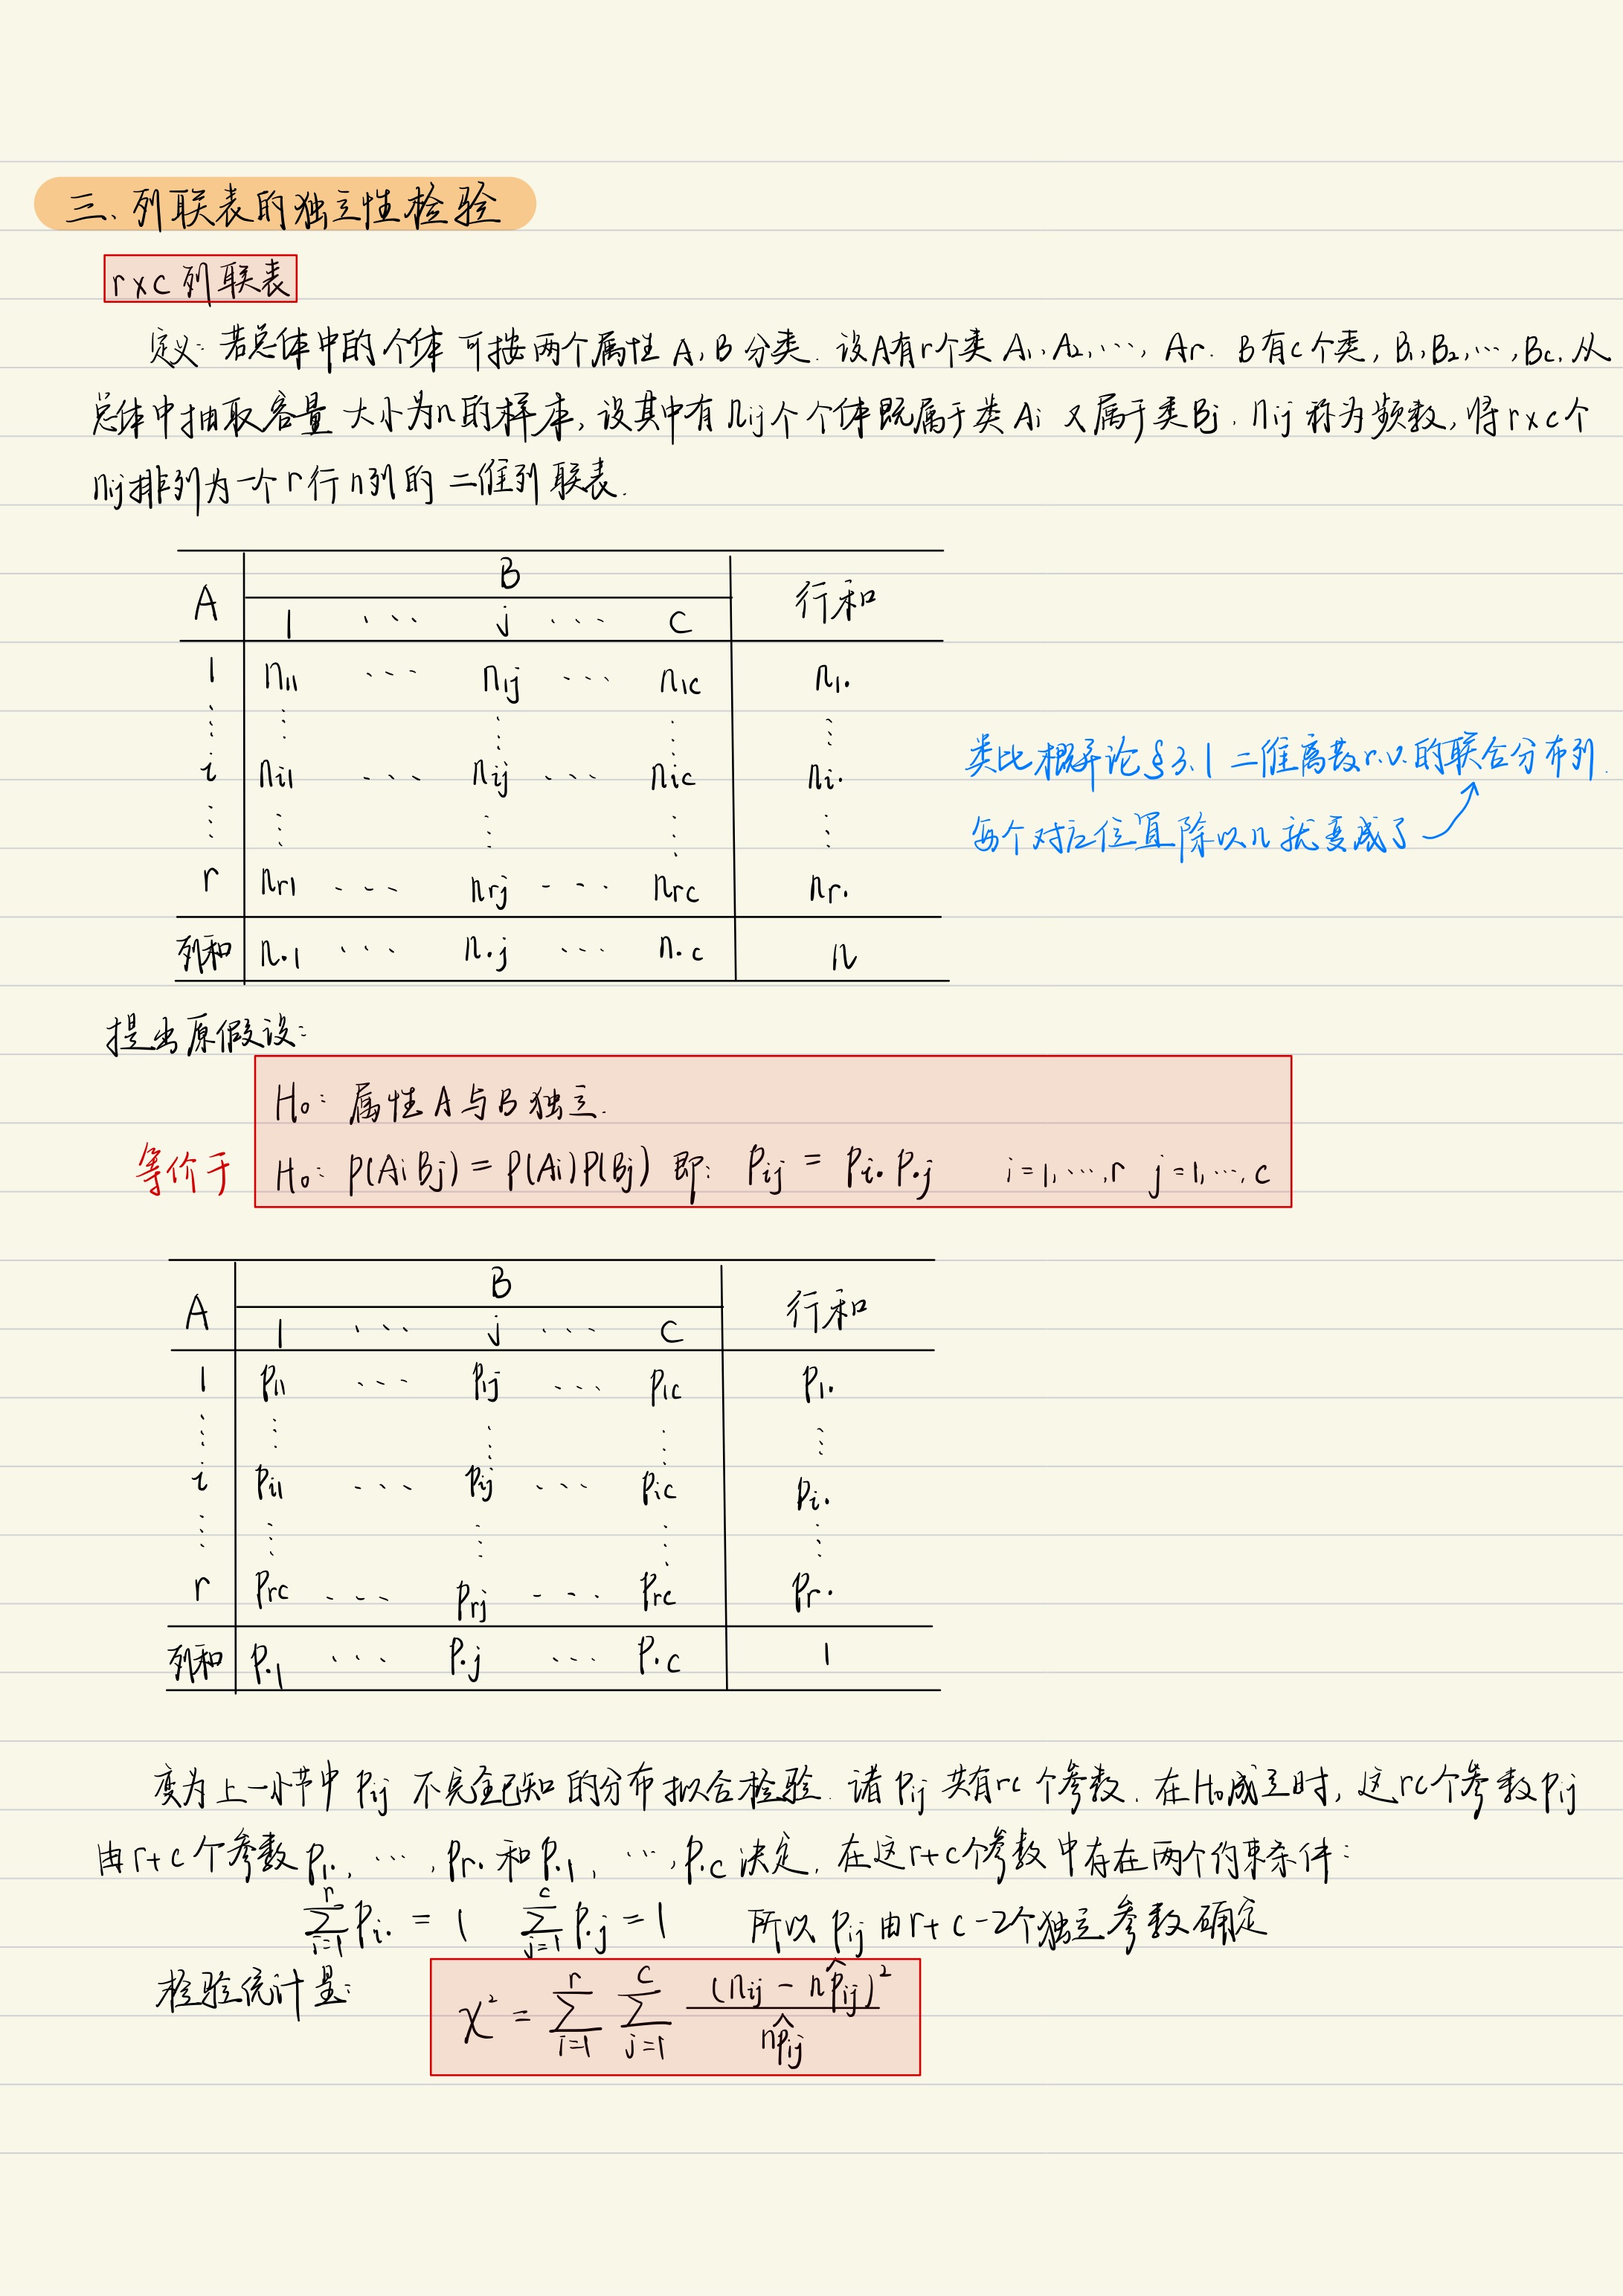 三、列联表的独立性检验
r×c 列联表
定义: 若总体中的个体可按两个属性A, B分类. 设A有r个类 A₁, A₂, ⋯, Ar. B有c个类, B₁, B₂, ⋯, Bc, 从
总体中抽取容量大小为n的样本, 设其中有nij个个体既属于类Ai又属于类Bj. nij称为频数, 将r×c个
nij排列为一个r行n列的二维列联表.
A B 行和
1 ⋯ j ⋯ c
1 n11 ⋯ n1j ⋯ n1c n1·
⋮ ⋮ ⋮ ⋮ ⋮
i ni1 ⋯ nij ⋯ nic ni·
⋮ ⋮ ⋮ ⋮ ⋮
r nr1 ⋯ nrj ⋯ nrc nr·
列和 n·1 ⋯ n·j ⋯ n·c n
类比概率论§3.1 二维离散r.v.的联合分布列.
每个对应位置除以n就变成了
提出原假设:
H₀: 属性A与B独立.
等价于 H₀: P(AiBj) = P(Ai)P(Bj) 即: Pij = Pi· P·j i=1,⋯,r j=1,⋯,c
A B 行和
1 ⋯ j ⋯ c
1 P11 ⋯ P1j ⋯ P1c P1·
⋮ ⋮ ⋮ ⋮ ⋮
i Pi1 ⋯ Pij ⋯ Pic Pi·
⋮ ⋮ ⋮ ⋮ ⋮
r Prc ⋯ Prj ⋯ Prc Pr·
列和 P·1 ⋯ P·j ⋯ P·c 1
变为上一小节中Pij不完全已知的分布拟合检验. 诸Pij共有rc个参数. 在H₀成立时, 这rc个参数Pij
由r+c个参数P1·, ⋯, Pr·和P·1, ⋯, P·c决定, 在这r+c个参数中存在两个约束条件:
∑_{i=1}^{r} Pi· = 1 ∑_{j=1}^{c} P·j = 1 所以Pij由r+c-2个独立参数确定
检验统计量: χ² = ∑_{i=1}^{r} ∑_{j=1}^{c} (nij - np̂ij)² / np̂ij